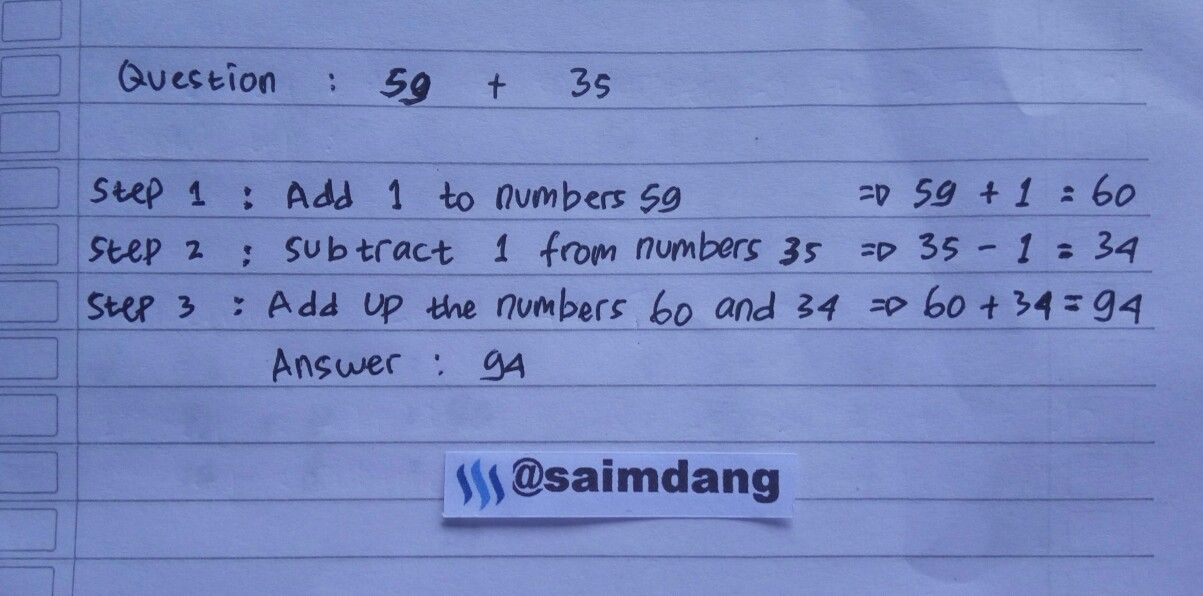 Question : 59 + 35
Step 1 : Add 1 to numbers 59 => 59 + 1 = 60
Step 2 : Subtract 1 from numbers 35 => 35 - 1 = 34
Step 3 : Add up the numbers 60 and 34 => 60 + 34 = 94
Answer : 94
@saimdang